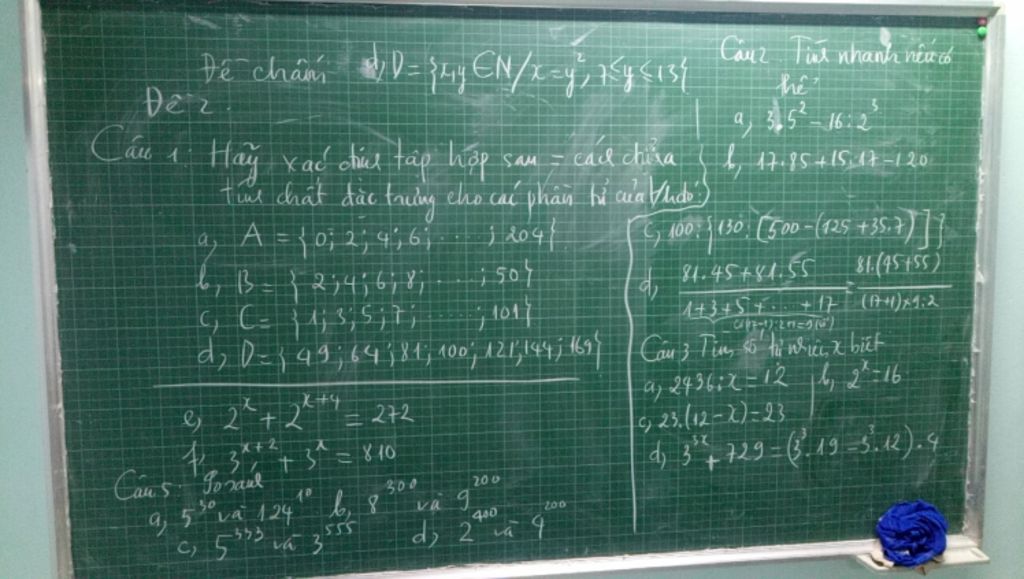 Đề chẵn
d, D = {x,y ∈ N / x = y², 7 ≤ y ≤ 13}
Đề 2.
Câu 1: Hãy xác định tập hợp sau = cách chỉ ra
tính chất đặc trưng cho các phần tử của t/h đó:
a, A = {0; 2; 4; 6; .....; 204}
b, B = {2; 4; 6; 8; .....; 50}
c, C = {1; 3; 5; 7; .....; 101}
d, D = {49; 64; 81; 100; 121; 144; 169}
e, 2^x + 2^{x+4} = 272
f, 3^{x+2} + 3^x = 810
Câu 5. So sánh
a, 5^30 và 124^10 b, 8^300 và 9^200
c, 5^333 và 3^555 d, 2^400 và 4^200
Câu 2. Tính nhanh nếu có
thể
a, 3.5² - 16:2³
b, 17.85 + 15.17 - 120
c, 100:{130:[500-(125+35.7)]}
d, 81.45+81.55 / 1+3+5+.....+17 = 81.(45+55) / (17+1)×9:2
Câu 3 Tìm số tự nhiên x biết
a, 2436:x = 12 b, 2^x = 16
c, 23.(12-x) = 23
d, 3^{3x} + 729 = (3³.19 - 3³.12).4